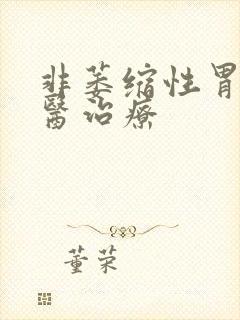 非萎缩性胃
醫治療
董荣